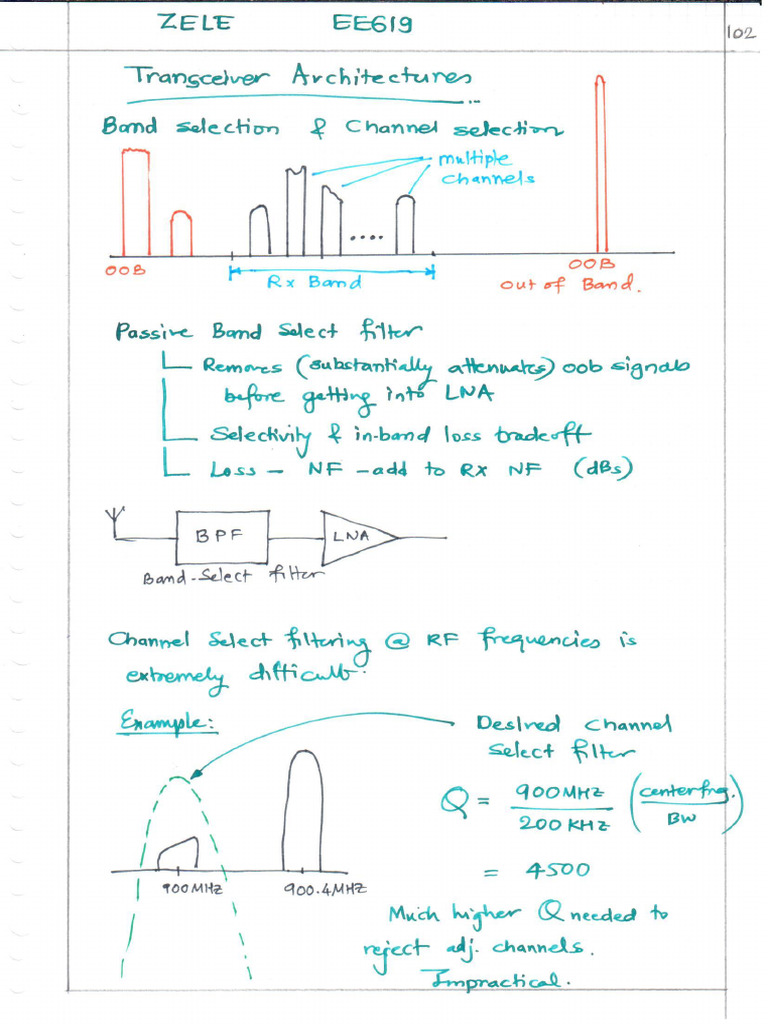 ZELE EE619
102
Transceiver Architectures
Band selection & Channel selection
multiple
channels
....
OOB
Rx Band
OOB
Out of Band.
Passive Band Select filter
Removes (substantially attenuates) oob signals
before getting into LNA
Selectivity & in-band loss tradeoff
Loss - NF - add to Rx NF (dBs)
BPF
LNA
Band-Select filter
Channel Select filtering @ RF frequencies is
extremely difficult.
Example:
Desired Channel
Select filter
Q = 900MHz / 200KHz (center frq. / BW)
= 4500
900MHz
900.4MHz
Much higher Q needed to
reject adj. channels.
Impractical.